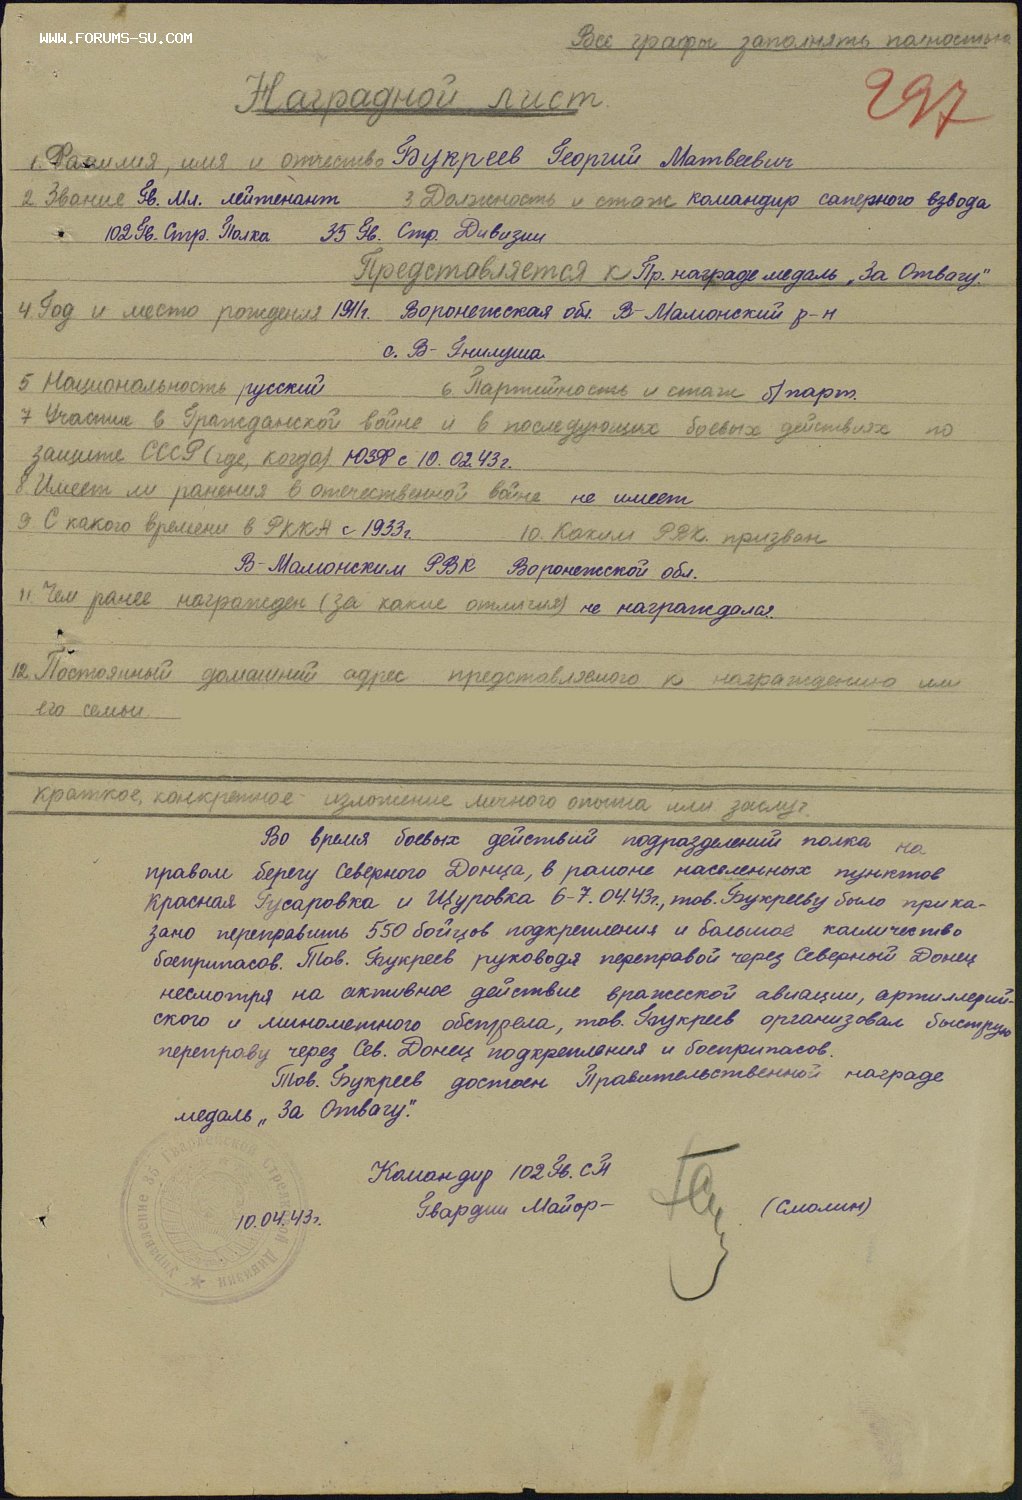 WWW.FORUMS-SU.COM
Все графы заполнять полностью
297
Наградной лист.
1. Фамилия, имя и отчество Букреев Георгий Матвеевич
2 Звание Гв. Мл. лейтенант 3 Должность и стаж командир саперного взвода
102 Гв. Стр. Полка 35 Гв. Стр. Дивизии
Представляется к Пр. награде медаль „За Отвагу".
4. Год и место рождения 1911г. Воронежская обл. В-Мамонский р-н
с. В-Гнилуша.
5 Национальность русский 6. Партийность и стаж б/парт.
7 Участие в Гражданской войне и в последующих боевых действиях по
защите СССР (где, когда) ЮЗФ с 10.02.43г.
8 Имеет ли ранения в отечественной войне не имеет
9 С какого времени в РККА с 1933г. 10. Каким РВК. призван
В-Мамонским РВК Воронежской обл.
11. Чем ранее награжден (за какие отличия) не награждался.
12. Постоянный домашний адрес представляемого к награждению или
его семьи.
Краткое, конкретное изложение личного опыта или заслуг.
Во время боевых действий подразделений полка на
правом берегу Северного Донца, в районе населенных пунктов
Красная Гусаровка и Щуровка 6-7.04.43г., тов. Букрееву было прика-
зано переправить 550 бойцов подкрепления и большое количество
боеприпасов. Тов. Букреев руководя переправой через Северный Донец
несмотря на активное действие вражеской авиации, артиллерий-
ского и минометного обстрела, тов. Букреев организовал быструю
переправу через Сев. Донец подкрепления и боеприпасов.
Тов. Букреев достоен Правительственной награде
медаль „За Отвагу".
Командир 102 Гв. СП
Гвардии Майор- (Смолин)
10.04.43г.
Управление 35 Гвардейской Стрелковой Дивизии